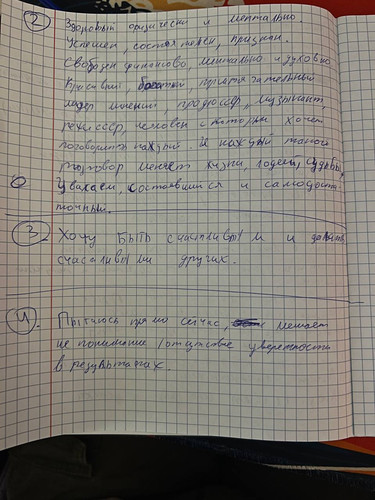 2 Здоровый физически и ментально
Успешен, состоятелен, признан.
Свободен финансово, ментально и духовно
Красивый, богатый, притягательный
лидер мнений, продюсер, музыкант,
режиссер, человек с которым хочет
поговорить каждый. И каждый такой
разговор меняет жизни, людей, судьбы.
Уважаем, состоявшийся и самодоста-
точный.
3. Хочу БЫТЬ счастливым и делать
счастливыми других.
4. Пытаюсь прямо сейчас, мешает
не понимание/отсутсвие уверенности
в результатах.